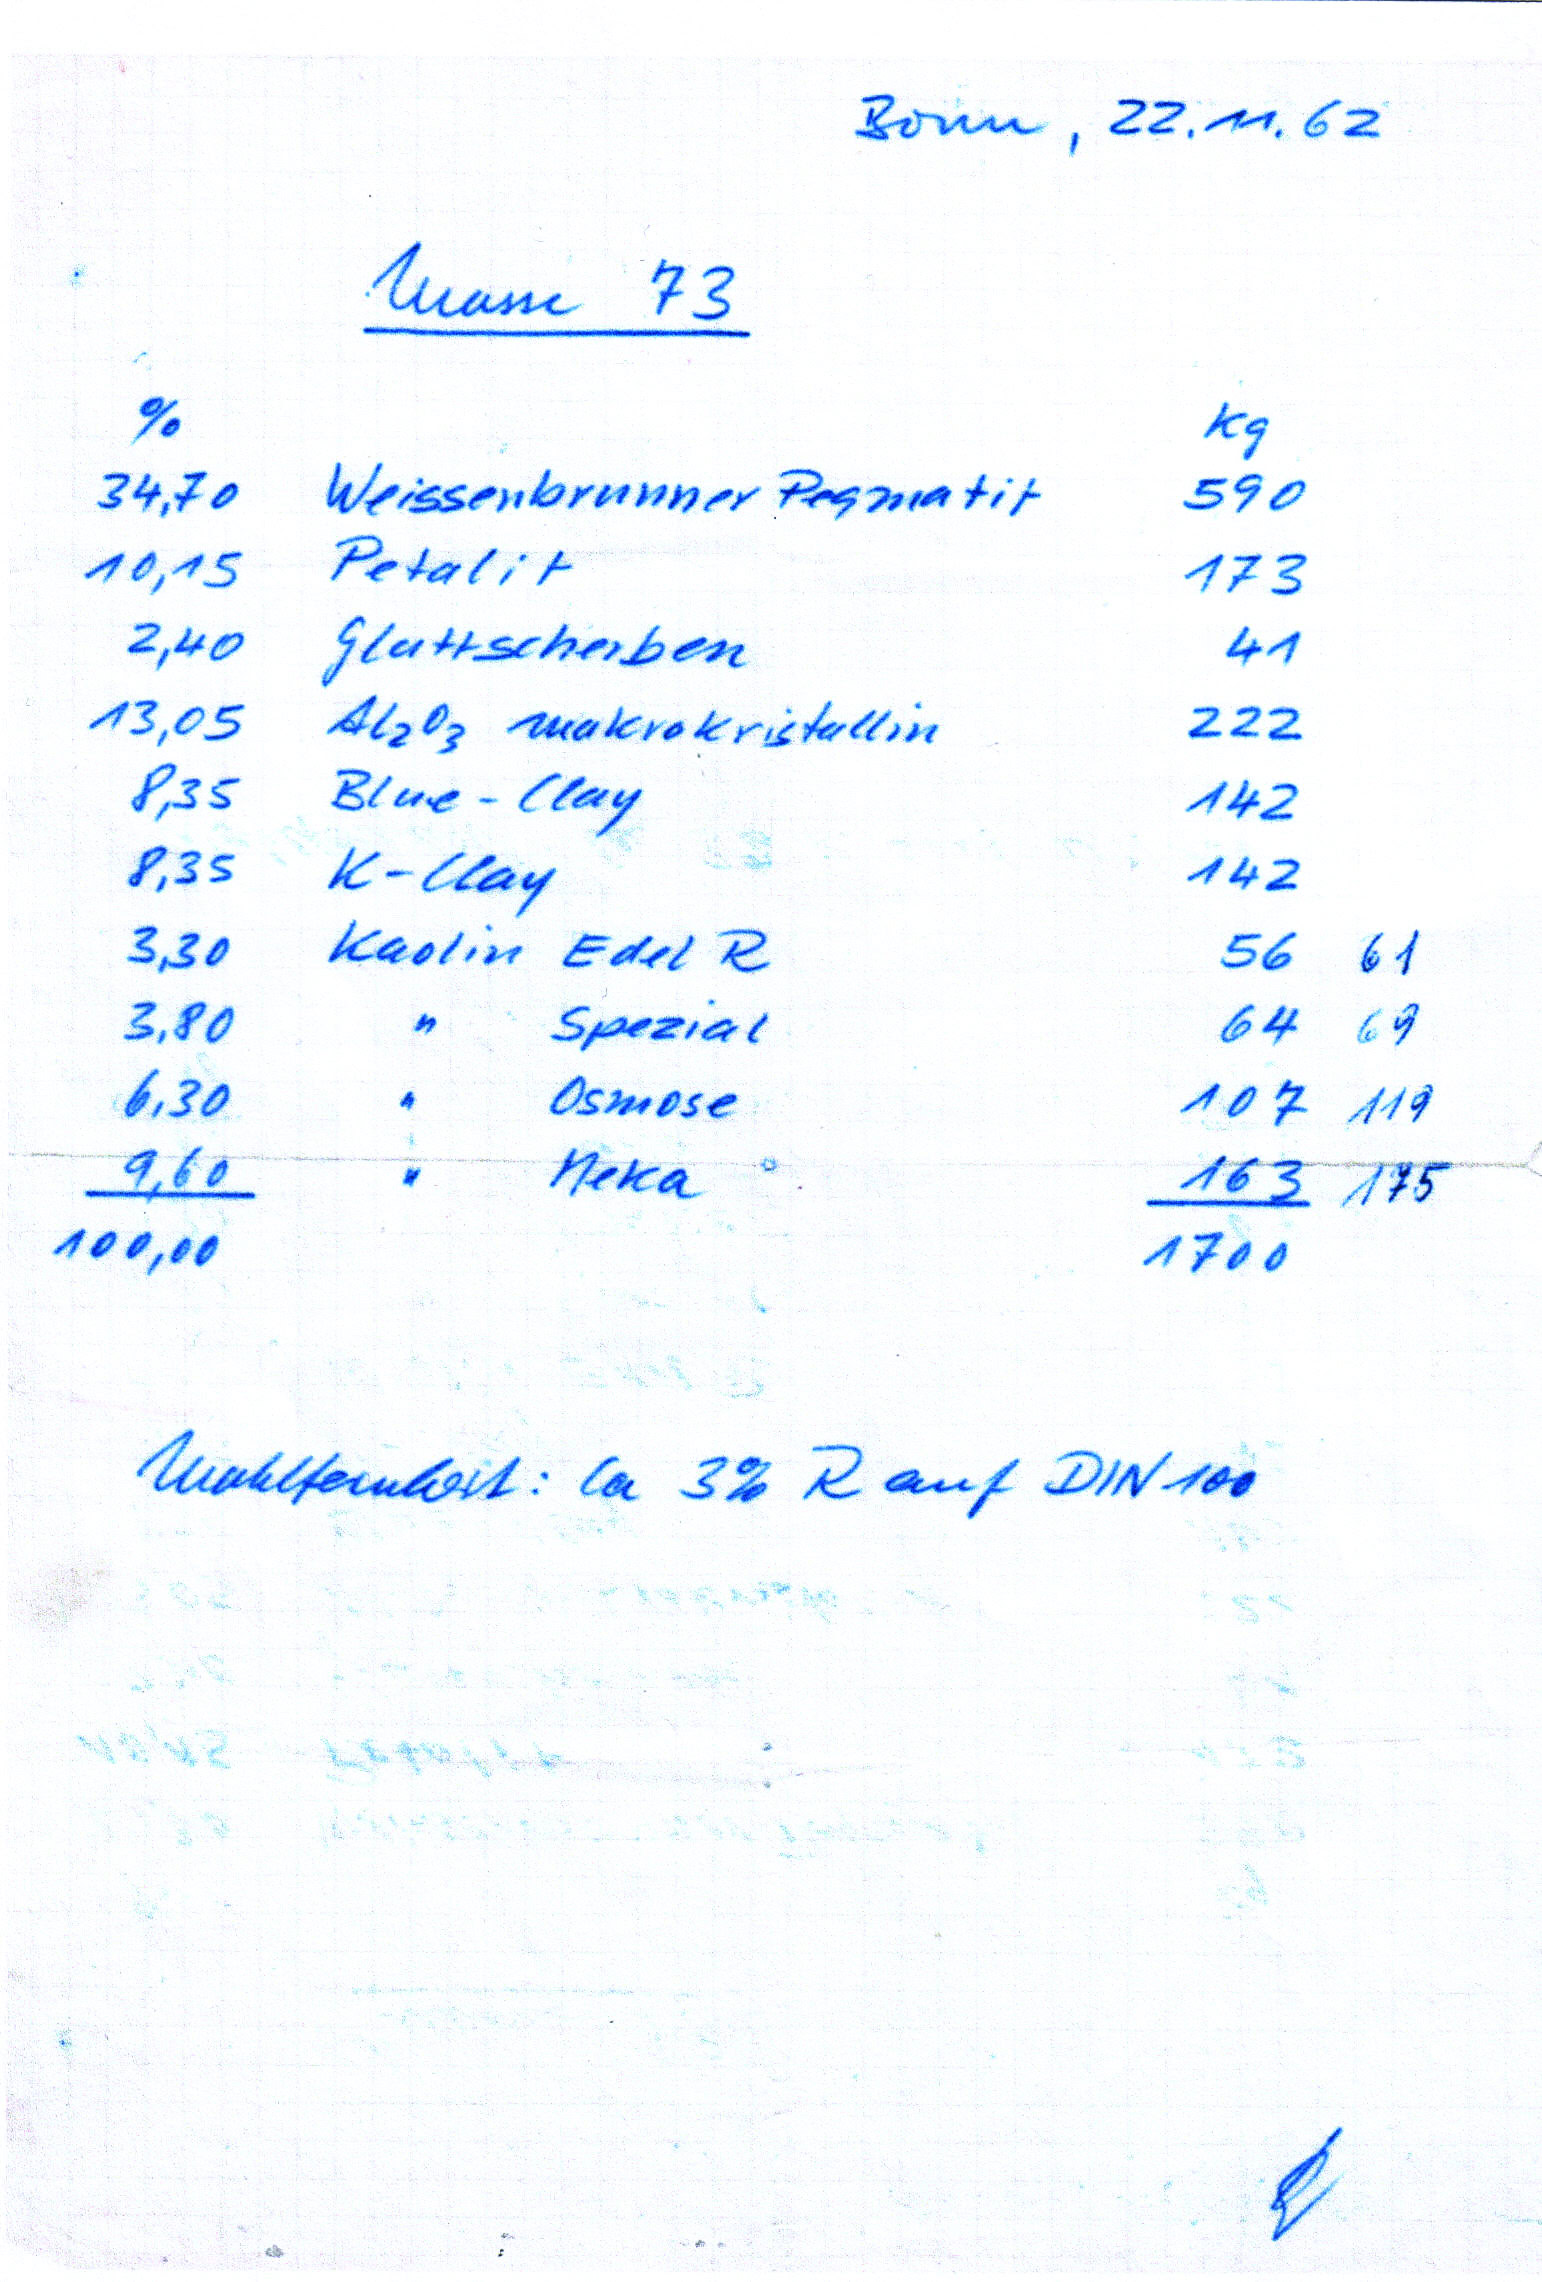 Bonn, 22.11.62
Masse 73
% kg
34,70 Weissenbrunner Pegmatit 590
10,15 Petalit 173
2,40 Glattscherben 41
13,05 Al₂O₃ makrokristallin 222
8,35 Blue-Clay 142
8,35 K-Clay 142
3,30 Kaolin Edel R 56 61
3,80 " Spezial 64 69
6,30 " Osmose 107 119
9,60 " Meka 163 175
100,00 1700
Mahlfeinheit: Ca 3% R auf DIN 100